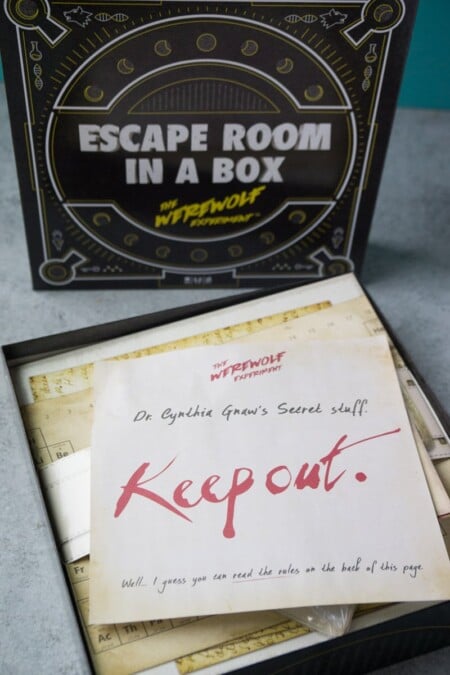 ESCAPE ROOM
IN A BOX
THE
WEREWOLF
EXPERIMENT™
THE
WEREWOLF
EXPERIMENT
Dr. Cynthia Gnaw's Secret stuff.
Keep out.
Well... I guess you can read the rules on the back of this page.
Be
Fr
Ac Th Pa